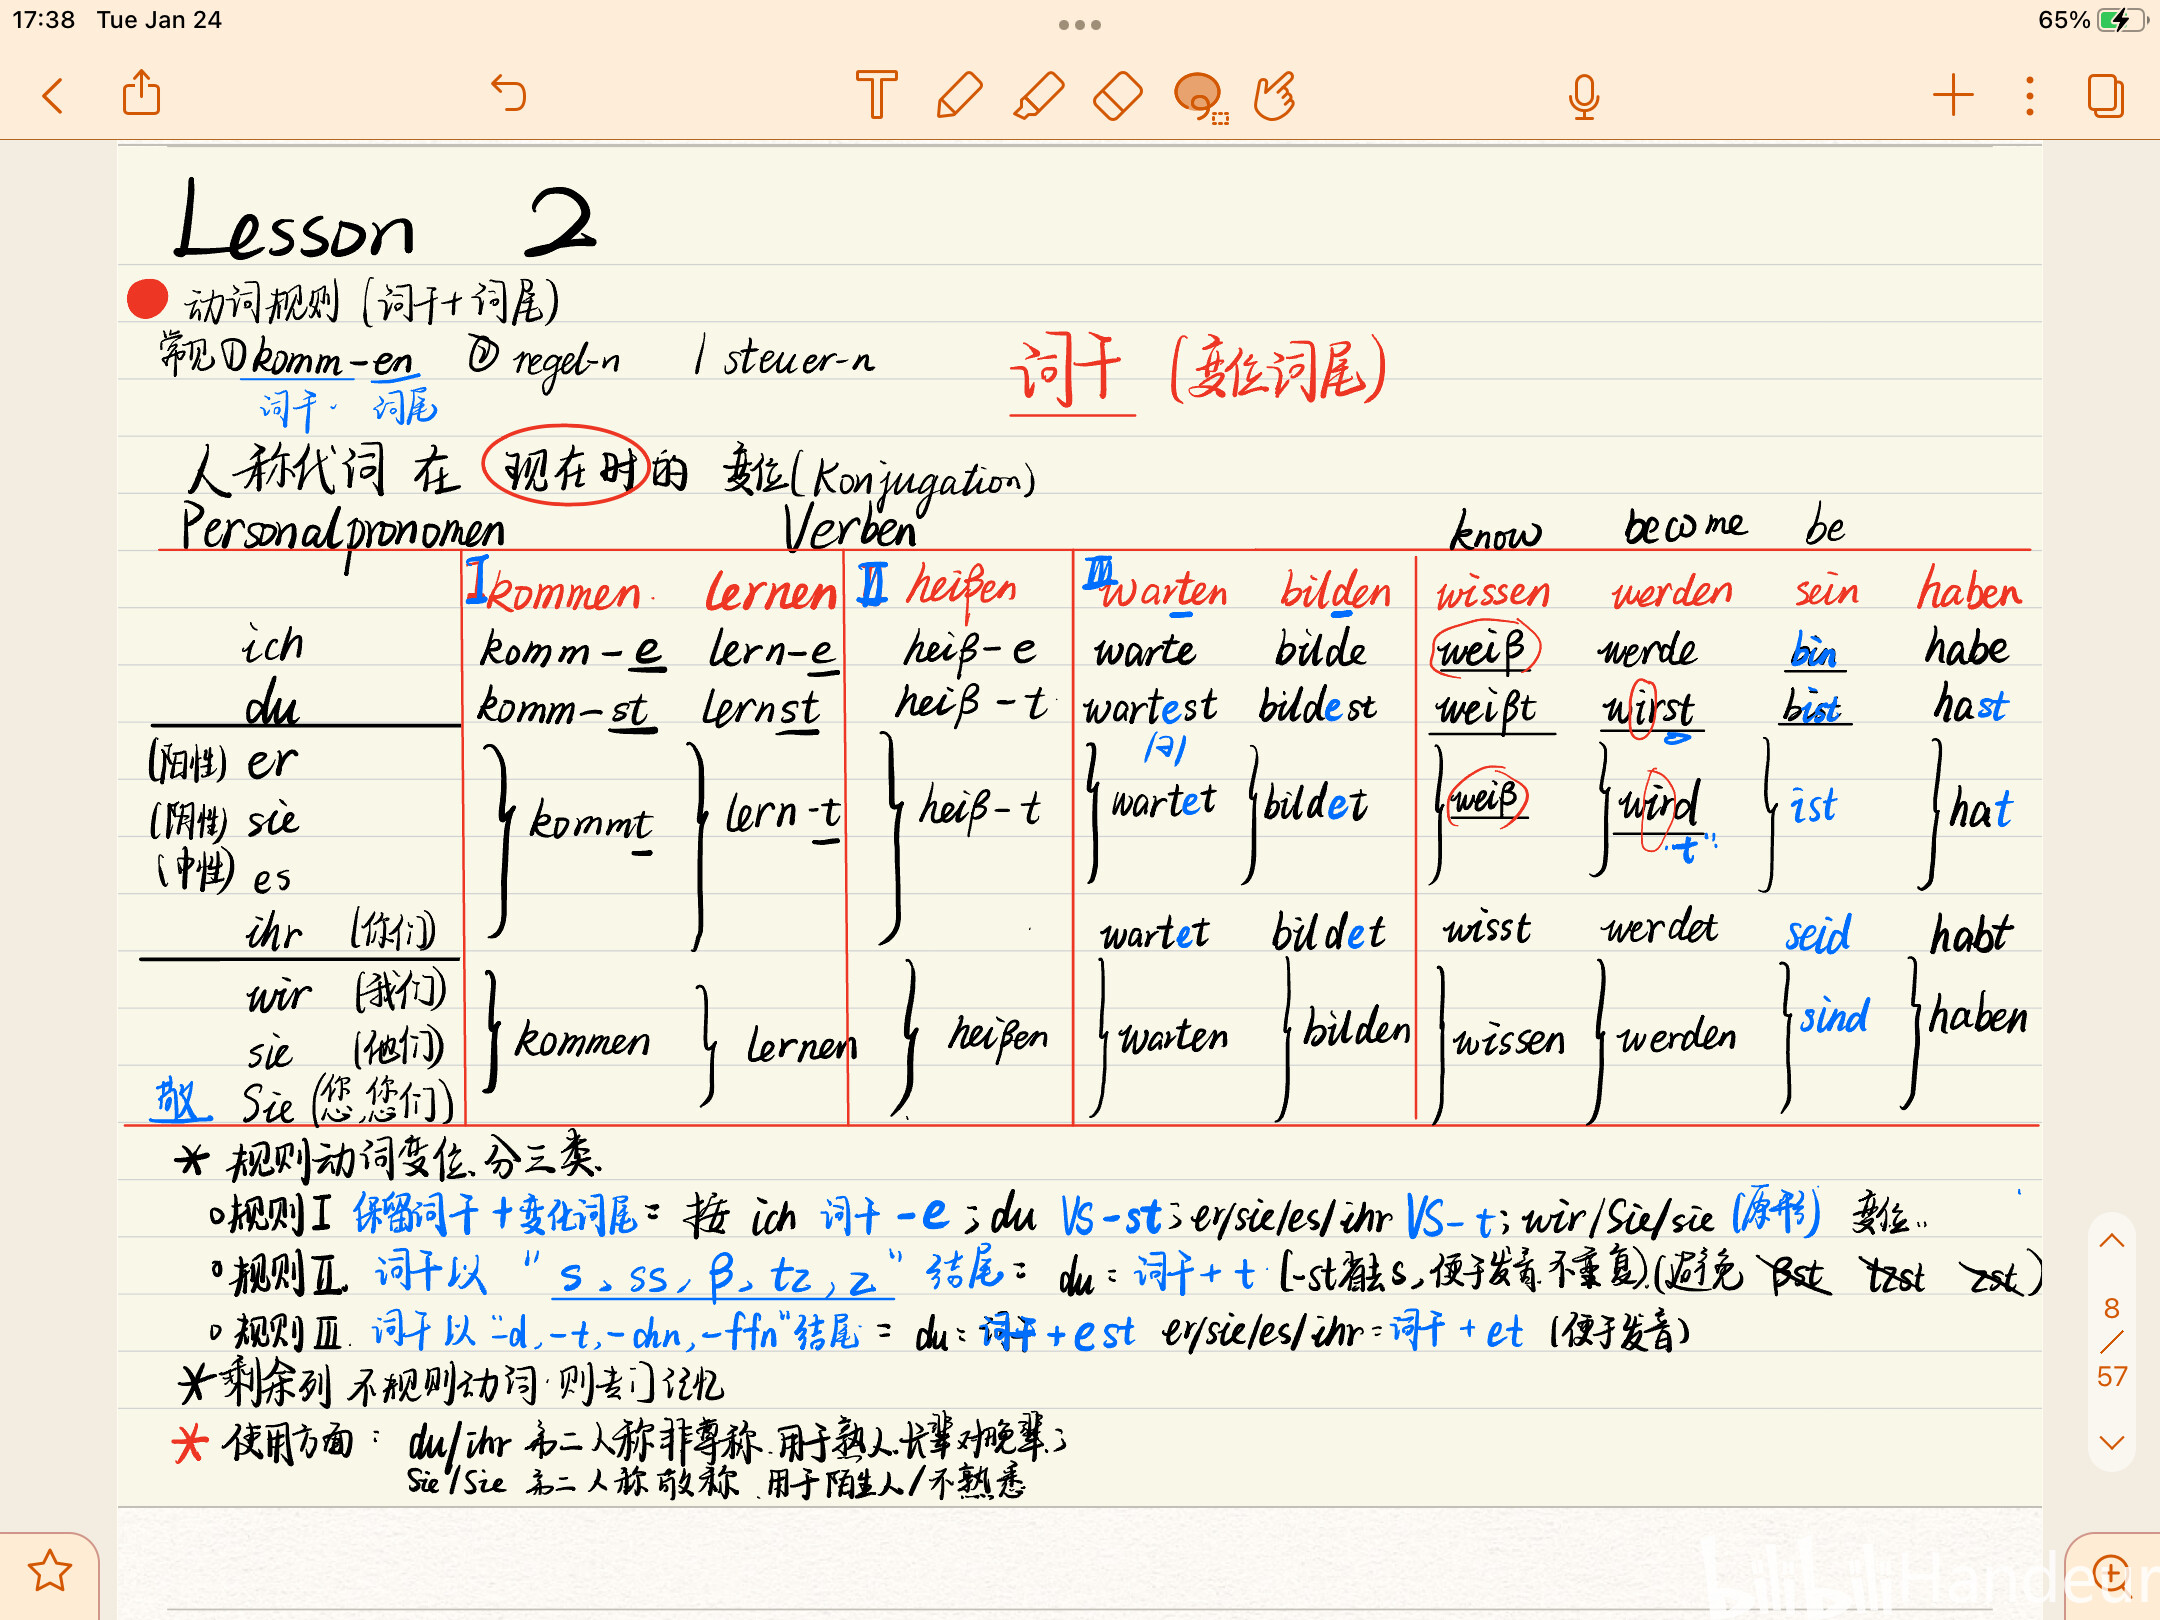 17:38 Tue Jan 24
65%
Lesson 2
动词规则 (词干+词尾)
常见 ① komm-en ② regel-n / steuer-n
词干 词尾
词干 (变位词尾)
人称代词 在 现在时 的 变位 (Konjugation)
Personalpronomen Verben know become be
I kommen lernen II heißen III warten bilden wissen werden sein haben
ich komm-e lern-e heiß-e warte bilde weiß werde bin habe
du komm-st lernst heiß-t wartest bildest weißt wirst bist hast
|ə|
(阳性) er
(阴性) sie kommt lern-t heiß-t wartet bildet weiß wird ist hat
"t"
(中性) es
ihr (你们) wartet bildet wisst werdet seid habt
wir (我们)
sie (他们) kommen lernen heißen warten bilden wissen werden sind haben
敬 Sie (您,您们)
* 规则动词变位、分三类.
规则 I 保留词干+变化词尾 = 按 ich 词干-e ; du VS-st ; er/sie/es/ihr VS-t ; wir/Sie/sie (原形) 变位..
规则 II. 词干以 "s, ss, β, tz, z" 结尾 = du = 词干+t (-st省去s, 便于发音.不重复) (避免 βst tzst zst)
规则 III. 词干以 "-d, -t, -chn, -ffn" 结尾 = du = 词干+est er/sie/es/ihr = 词干+et (便于发音)
* 剩余列 不规则动词.则专门记忆
* 使用方面: du/ihr 第二人称非尊称.用于熟人.长辈对晚辈;
Sie/Sie 第二人称敬称.用于陌生人/不熟悉
8
/
57
bilibili